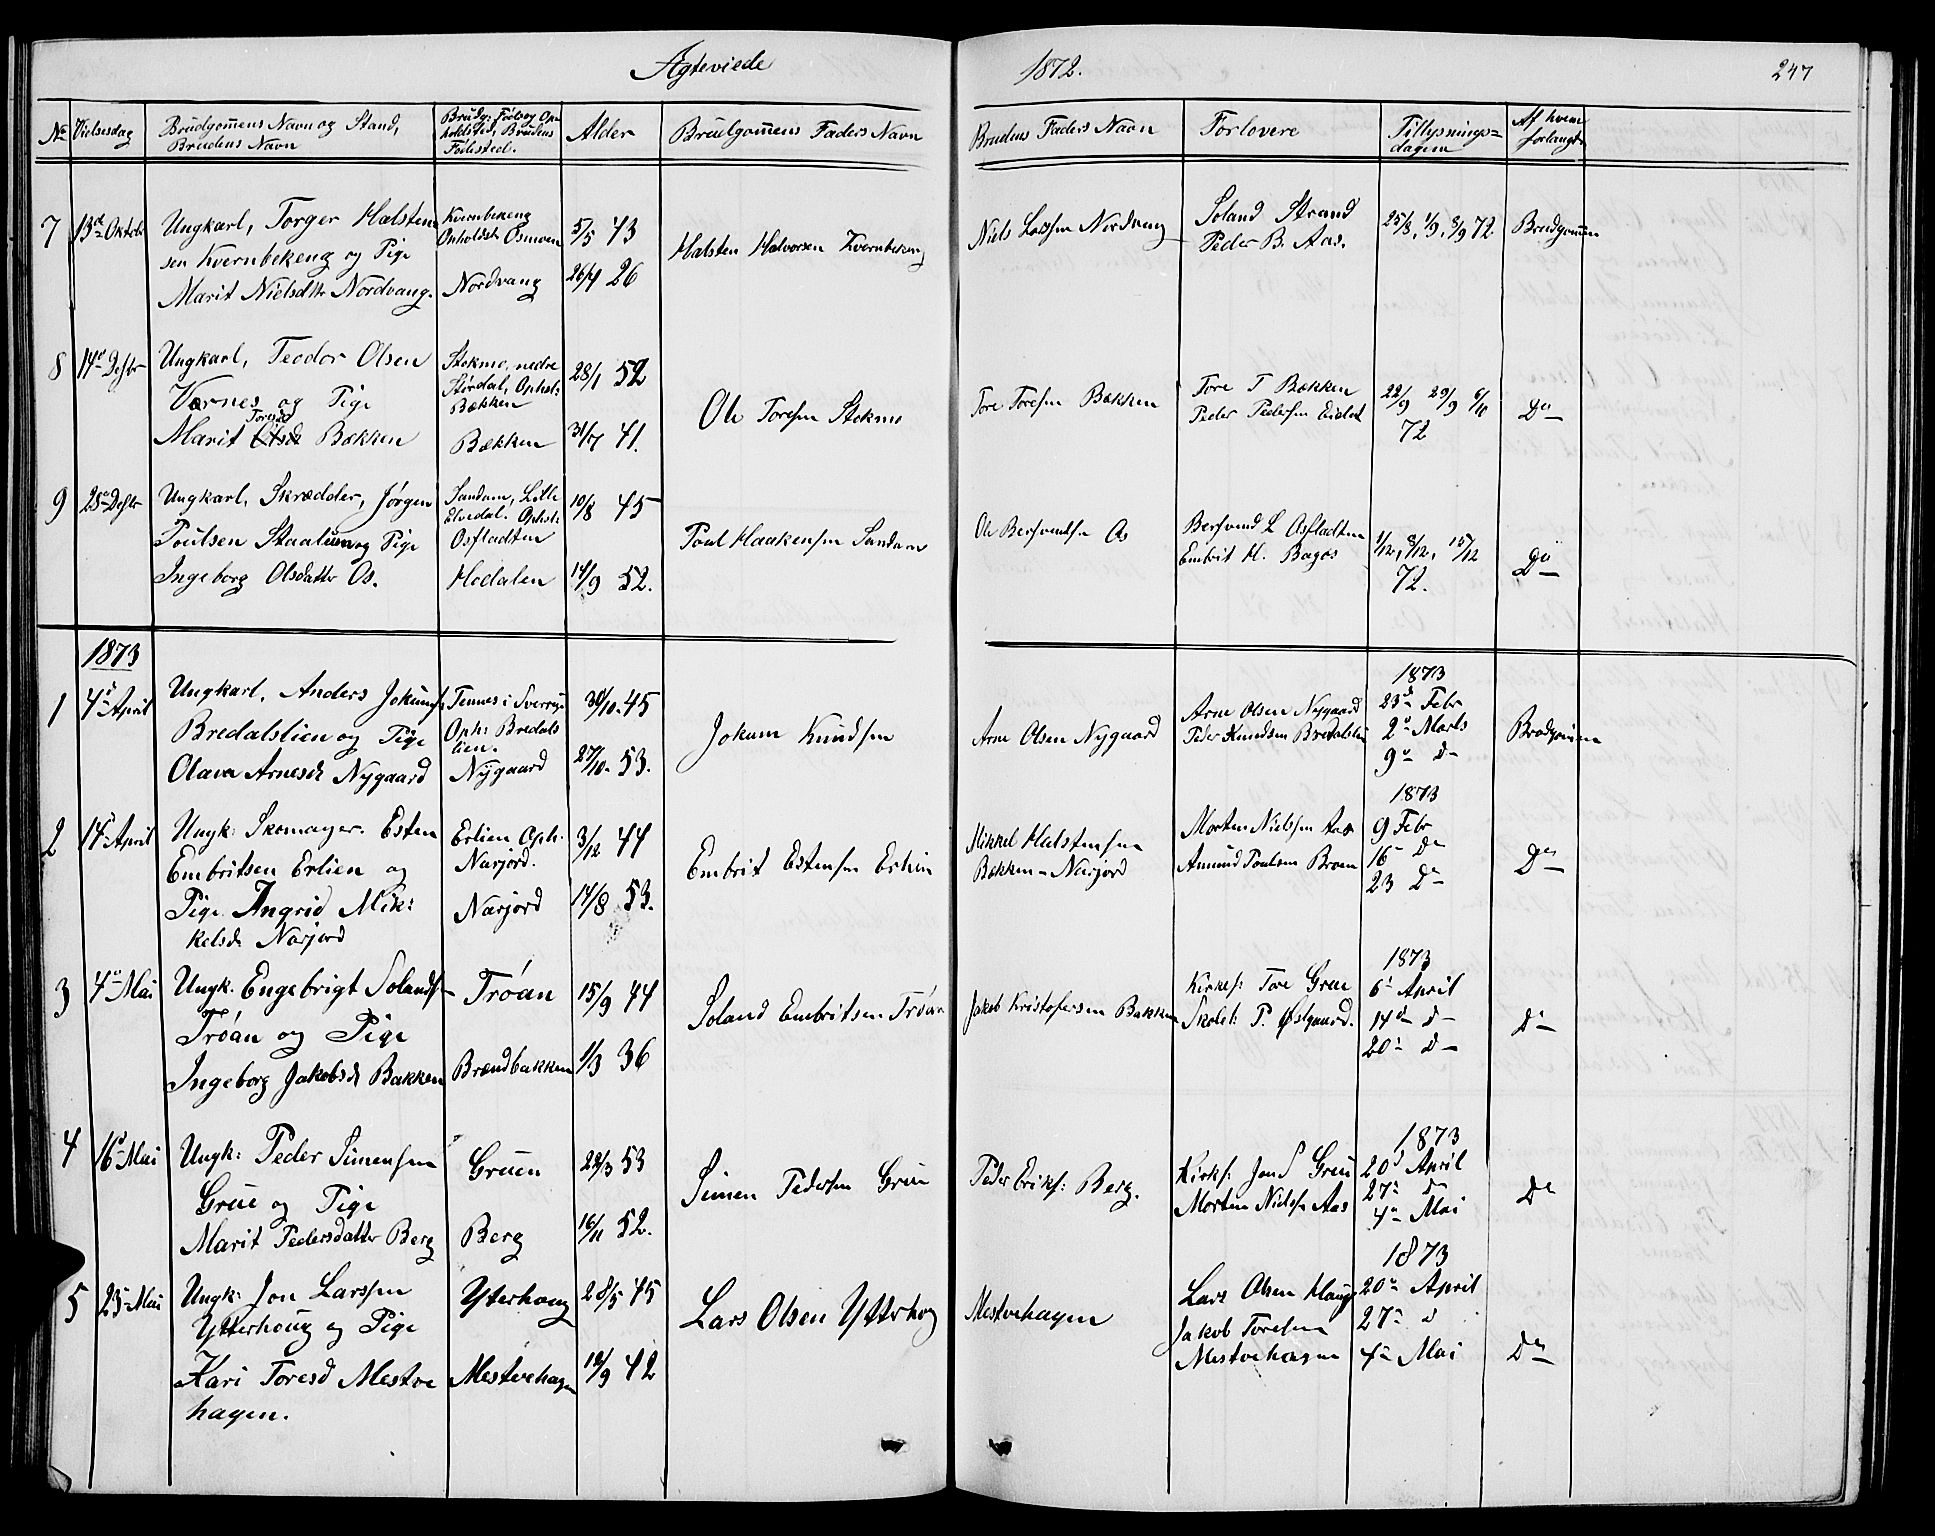 Ægteviede
1872.
247
No Vielsesdag Brudgomens Navn og Stand, Brudens Navn
Brudg: Føde og Opholdsted, Brudens Fødested.
Alder
Brudgomens Faders Navn
Brudens Faders Navn
Forlovere
Tillysningsdagene
Af hvem forlangt
7 13de Oktobr
Ungkarl, Torger Halsten
sen Kvernbekeng og Pige
Marit Nielsdttr Nordvang.
Kvernbekeng
Opholdst: Osmoen
Nordvang
5/5 43
26/4 26
Halsten Halvorsen Kvernbekeng
Niels Larssen Nordvang
Soland Strand
Peder B. Aas.
25/8, 1/9, 8/9 72
Brudgomen
8 14de Desbr
Ungkarl, Teodor Olsen
Værnes og Pige
Toresd
Marit Olsd Bækken
Stokmo, nedre
Stördal, Ophst:
Bækken
Bækken
28/1 52
31/7 41.
Ole Toresen Stokmo
Tore Toresen Bækken
Tore T Bækken
Peder Pedersen
22/9 29/9 6/10
72
Do
9 28de Desbr
Ungkarl, Skrædder, Jörgen
Poulsen og Pige
Ingeborg Olsdatter Os.
Sandom, Lille
Elvedal. Ophst:
Osfladten
Hodalen
10/8 45
14/9 52.
Poul Haakensen Sandom
Ole Bersvendsen Os
Bersvend L Osfladten
Embrit H. Bagos
1/12, 8/12, 15/12
72.
Do
1873
1 4de April
Ungkarl, Anders Jokums
Bredalslien og Pige
Olava Arnesdt Nygaard
Tennes i Sverrige
Oph: Bredals
lien.
Nygaard
30/10 45
27/10 53.
Jokum Knudsen
Arne Olsen Nygaard
Arne Olsen Nygaard
Peder Knudsen Bredalslien
1873
23de Febr
2de Marts
9de D
Brudgomen
2 14de April
Ungk: Skomager. Esten
Embritsen Erlien og
Pige Ingrid Mik:
kelsd: Narjord
Erlien Oph:
Narjord.
Narjord
3/12 44
14/8 53.
Embrit Estensen Erlien
Mikkel Halstensen
Bækken - Narjord
Morten Nielsen Aas
Amund Poulsen Broen
1873
9 Febr
16 Do
23 Do
Do
3 4de Mai
Ungk. Engebrigt Solands
Tröan og Pige
Ingeborg Jakobsdt Bakken
Tröan
Brændbakken
15/9 44
1/3 36
Soland Embritsen Tröan
Jakob Kristofersen Bakken
Kirkes: Tore Grue
Skolel: P. Østgaard.
1873
6te April
14de D
20de D
Do
4 16de Mai
Ungk: Peder Simensen
Grue og Pige
Marit Pedersdatter Berg
Gruen
Berg
22/3 53
16/11 52.
Simen Pedersen Grue
Peder Eriks: Berg.
Kirks: Jon S Grue
Morten Nielsen Aas
1873
20de April
27de D
4de Mai
Do
5 23de Mai
Ungk: Jon Larssen
Ytterhoug og Pige
Kari Toresd Mestve
hagen.
Yterhoug
Mestvehagen
28/5 45
12/9 42
Lars Olsen Ytterhog
Mestvehagen
Lars Olsen Haug
Jakob Toresen
Mestvehagen
1873
20de April
27de d
4de Mai
Do